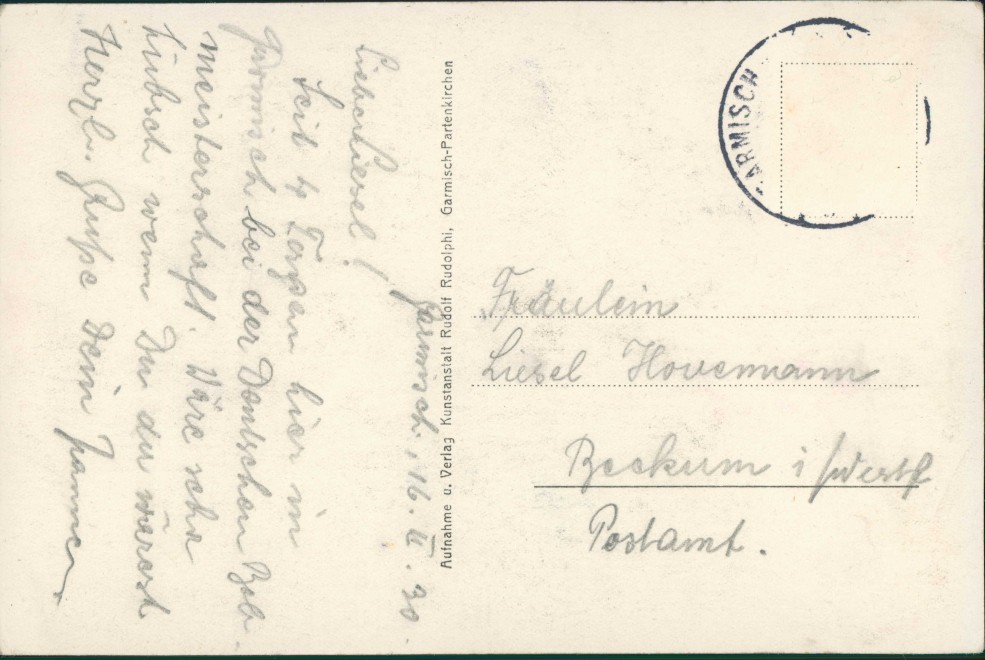 Garmisch, 16. II. 30.
Liebe Liesel!
Seit 4 Tagen hier in
Garmisch bei der Deutschen Bob-
meisterschaft. Wäre sehr
hübsch wenn Du da wärest
Herzl. Grüße Dein
Aufnahme u. Verlag Kunstanstalt Rudolf Rudolphi, Garmisch-Partenkirchen
GARMISCH
Fräulein
Liesel Hovemann
Beckum i/Westf
Postamt.